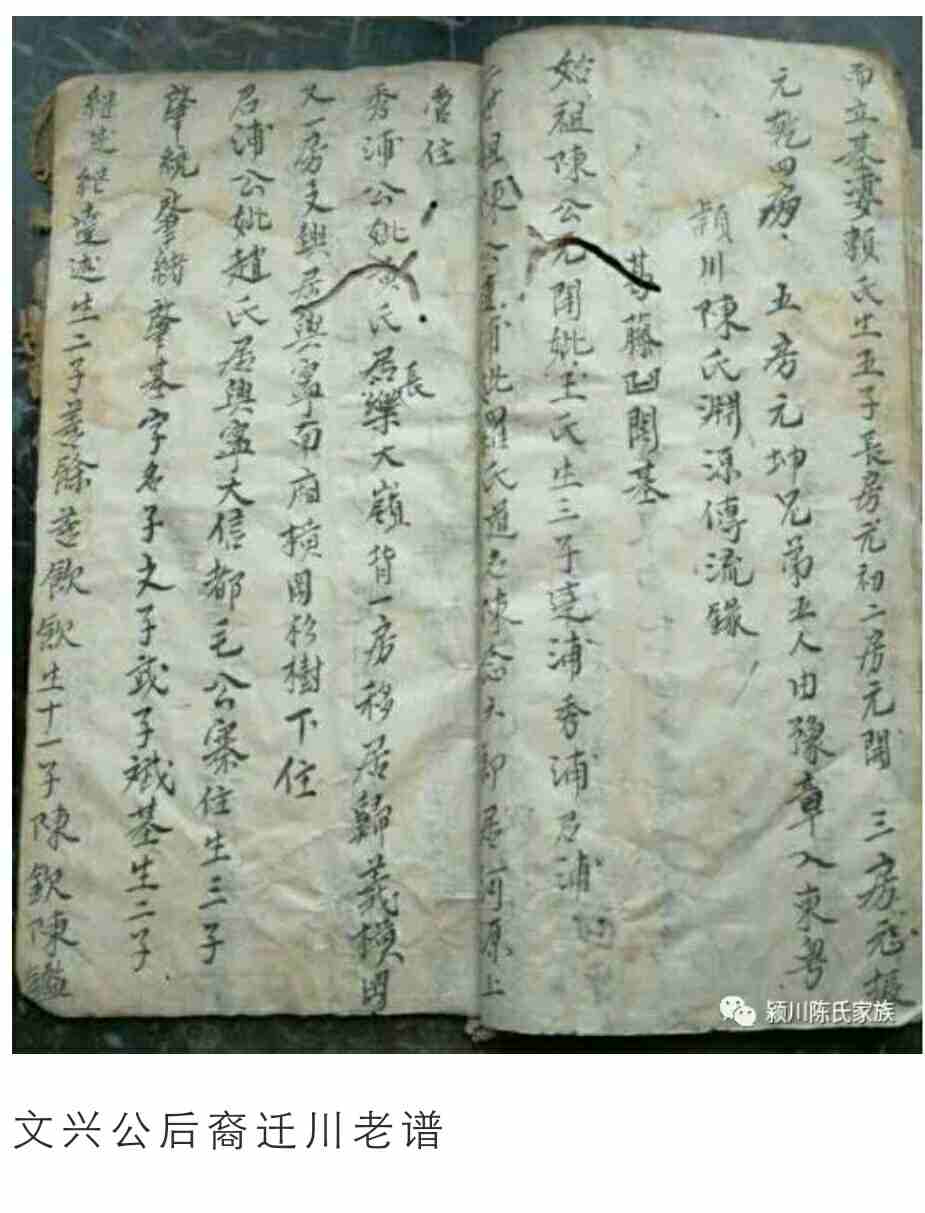 而立基妻賴氏生五子長房元初二房元開三房元振
元乾四房五房元坤兄弟五人由豫章入東粤
潁川陳氏淵源傳流錄
葛藤凹開基
始祖陳公元開妣王氏生三子建浦秀浦吕浦
氏道之陳念九郎居河原上
管住
秀浦公妣黄氏居長樂大嶺背一房移居歸善横岡
又一房文興居興寧南廂横岡杉樹下住
吕浦公妣趙氏居興寧大信都毛公寨住生三子
肇統肇緒肇基字名子文子武子斌基生二子
繼述繼達述生二子薏餘薏欽欽生十一子陳欽陳鑑
颍川陈氏家族
文兴公后裔迁川老谱